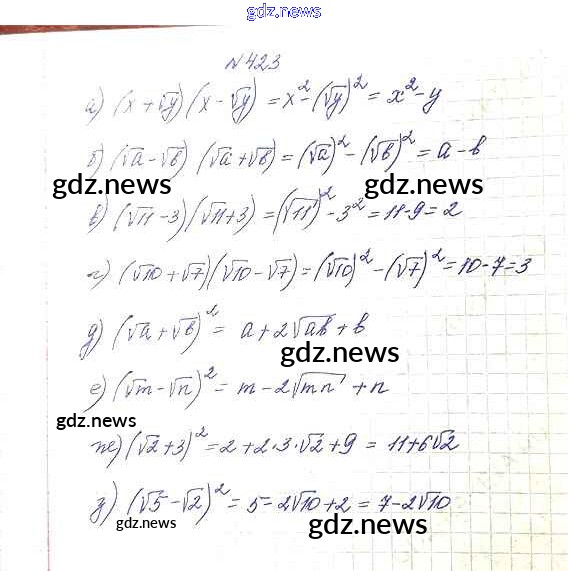 gdz.news
№423
а) (x + √y) (x - √y) = x² - (√y)² = x² - y
б) (√a - √b) (√a + √b) = (√a)² - (√b)² = a - b
gdz.news gdz.news
в) (√11 - 3) (√11 + 3) = (√11)² - 3² = 11 - 9 = 2
г) (√10 + √7) (√10 - √7) = (√10)² - (√7)² = 10 - 7 = 3
д) (√a + √b)² = a + 2√ab + b
gdz.news
е) (√m - √n)² = m - 2√mn + n
gdz.news
ж) (√2 + 3)² = 2 + 2·3·√2 + 9 = 11 + 6√2
з) (√5 - √2)² = 5 - 2√10 + 2 = 7 - 2√10
gdz.news gdz.news